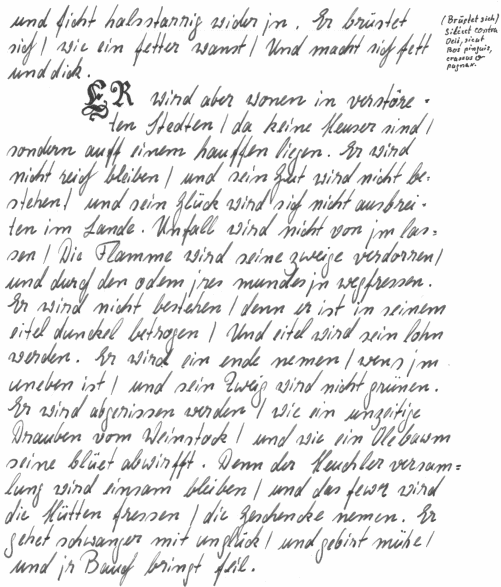 und ficht halsstarrig wider jn. Er brüstet
sich / wie ein fetter wanst / Und macht sich fett
und dick.
(Brüstet sich)
Silicet contra
Deū, sicut
Bos pinguis,
crassus &
pugnax.
ER wird aber wonen in verstöre-
ten Stedten / da keine Heuser sind /
sondern auff einem hauffen liegen. Er wird
nicht reich bleiben / und sein Gut wird nicht be=
stehen / und sein Glück wird sich nicht ausbrei-
ten im Lande. Unfall wird nicht von jm las-
sen / Die Flamme wird seine zweige verdorren /
und durch den odem jres mundes jn wegfressen.
Er wird nicht bestehen / denn er ist in seinem
eitel dunckel betrogen / Und eitel wird sein lohn
werden. Er wird ein ende nemen / wens jm
uneben ist / und sein Zweig wird nicht grünen.
Er wird abgerissen werden / wie ein unzeitige
Drauben vom Weinstock / und wie ein Olebawm
seine blüet abwirfft. Denn der Heuchler versam=
lung wird einsam bleiben / und das fewr wird
die Hütten fressen / die Geschencke nemen. Er
gehet schwanger mit unglück / und gebirt mühe /
und jr Bauch bringt feil.